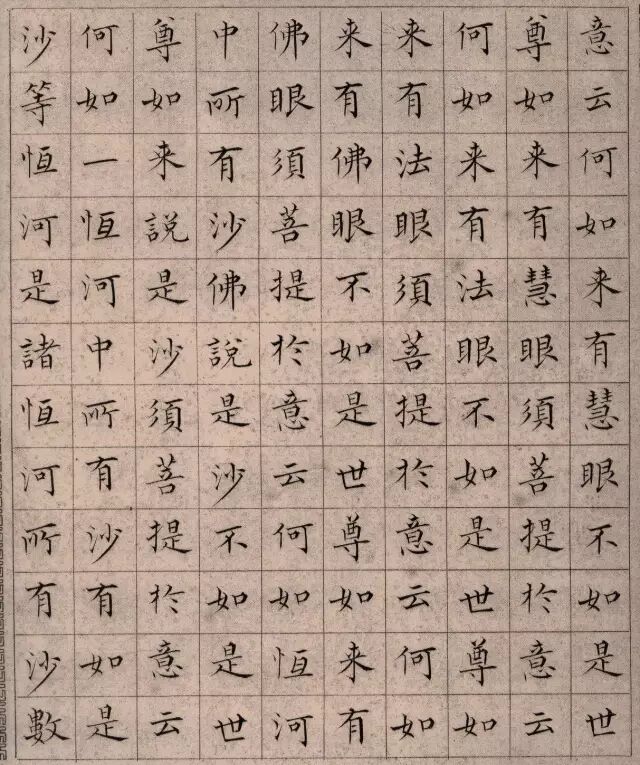 意云何如来有慧眼不如是世
尊如来有慧眼須菩提於意云
何如来有法眼不如是世尊如
来有法眼須菩提於意云何如
来有佛眼不如是世尊如来有
佛眼須菩提於意云何如恒河
中所有沙佛說是沙不如是世
尊如来說是沙須菩提於意云
何如一恒河中所有沙有如是
沙等恒河是諸恒河所有沙數